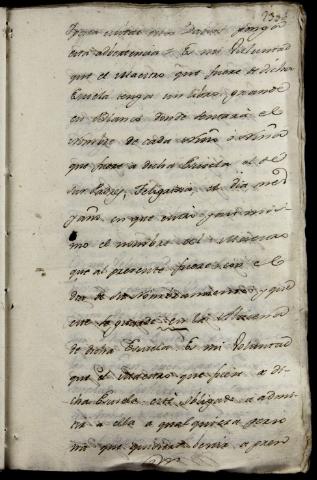 233
esta advertencia. Es mi Voluntad
que el Maestro que fuere de dicha
Escuela tenga un libro grande
en blanco donde sentará el
Nombre de cada Niño ó Niña
que fuere a dicha Escuela el de
sus Padres, feligresia, el dia mes
y año en que entró, y assi mis-
mo el nombre del Maestro
que al presente fuere con el
de su Nombramiento y que
este se guarde en la Alhacena
de dicha Escuela. Es mi Voluntad
que el Maestro que fuere a di-
cha Escuela esté obligado a admi-
tir a ella a qualquiera perso
na que quisiere benir a pren